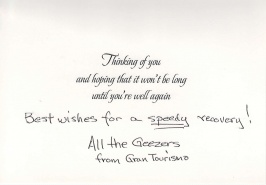 Thinking of you
and hoping that it won't be long
until you're well again
Best wishes for a speedy recovery!
All the Geezers
from Gran Tourismo